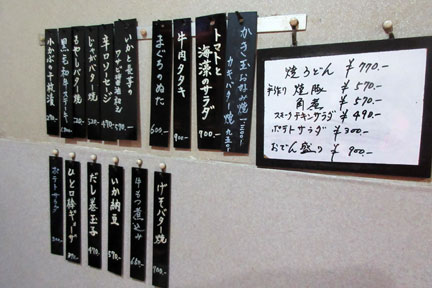 かき玉お好み焼 1200-
カキバター焼 950-
トマトと
海藻のサラダ
900-
牛肉タタキ
900-
まぐろのぬた
600-
いかと長芋の
ワサビ醤油和え
辛口ソーセージ
じゃがバター焼
もやしバター焼
黒毛和牛ステーキ
小かぶの千枚漬
焼うどん ¥770.-
手作り 焼豚 ¥570.-
角煮 ¥570.-
スモークチキンサラダ ¥490.-
ポテトサラダ ¥300.-
おでん盛り ¥900.-
げそバター焼
700-
牛もつ煮込み
いか納豆
570-
だし巻玉子
470-
ひと口棒ギョーザ
ポテトサラダ